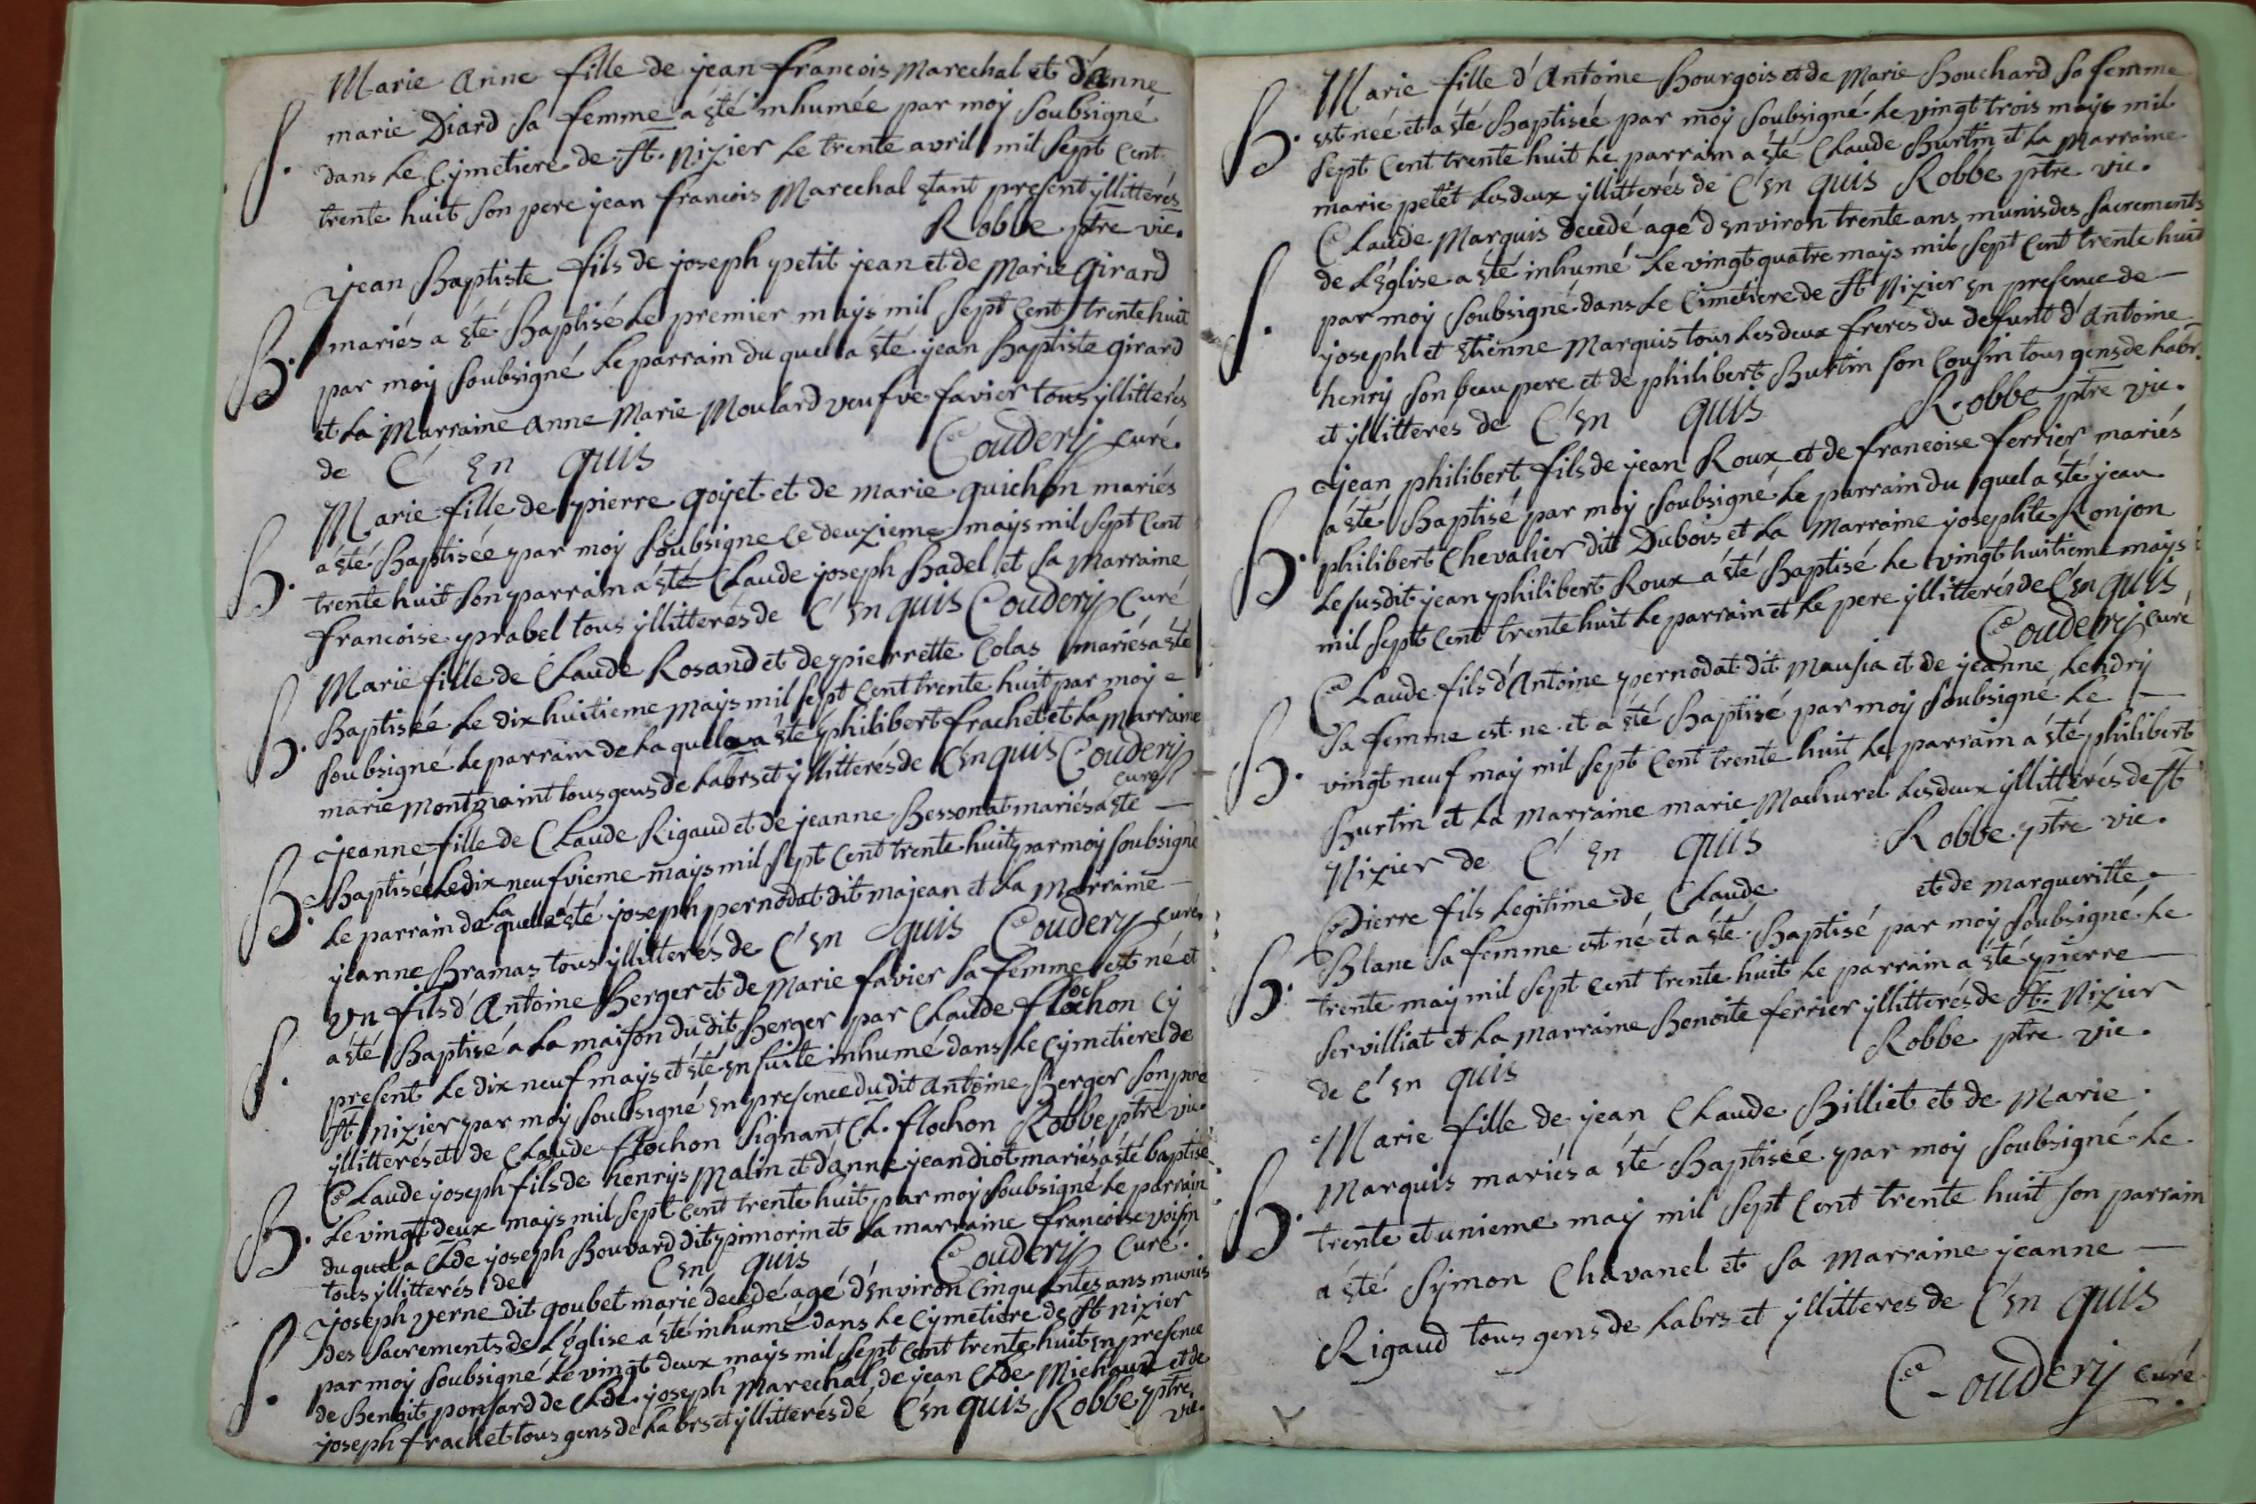 Marie Anne fille de jean francois Marechal et d'anne
S. marie Diard sa femme a été inhumée par moy soubsigné
dans Le Cymetiere de St. Nizier Le trente avril mil sept cent
trente huit son pere jean francois Marechal étant present yllitterés
Robbe ptre vic.
jean Baptiste fils de joseph petit jean et de Marie Girard
B. mariés a été Baptisé Le premier mays mil sept cent trente huit
par moy soubsigné Le parrain du quel a été jean Baptiste Girard
et La Marraine Anne Marie Moulard veufve favier tous yllitterés
de C'en quis Coudery curé.
Marie fille de pierre goyet et de marie guichon mariés
B. a été Baptisée par moy soubsigne Le deuzieme mays mil sept cent
trente huit son parrain a été Claude joseph Badel et sa Marraine
francoise prabel tous yllitterés de C'en quis Coudery Curé
Marie fille de Claude Rosand et de pierrette Colas mariés a été
B. Baptiseé Le dix huitieme mays mil sept cent trente huit par moy
soubsigné Le parrain de La quelle a été philibert frachet et La Marraine
marie tous gens de Labrs et yllitterés de C'en quis Coudery
curé
jeanne fille de Claude Rigaud et de jeanne Bessonat mariés a été
B. Baptisée Le dix neufvieme mays mil sept cent trente huit par moy soubsigné
Le parrain de La quelle a été joseph pernodat dit majean et La Marraine
jeanne Bramas tous yllitterés de C'en quis Coudery curé
Un fils d'Antoine Berger et de Marie favier sa femme est né et
S. a été Baptisé a La maison du dit Berger par Claude flochon cy
present Le dix neuf mays et été en suite inhumé dans Le Cymetiere de
St. Nizier par moy soubsigné en presence du dit Antoine Berger son pere
yllitterés et de Claude flochon signant Cl. flochon Robbe ptre vic.
Claude joseph fils de henrys Malin et danne jeandiot mariés a été baptisé
B. Le vingt deux mays mil sept cent trente huit par moy soubsigné Le parrain
du quel a Clde joseph Bouvard dit pimorin et La marraine francoise voisin
tous yllitterés de C'en quis Coudery Curé.
joseph verne dit goubet marié decedé agé d'environ cinquantes ans munis
des sacrements de L'église a été inhumé dans Le Cymetiere de St nizier
S. par moy soubsigné Le vingt deux mays mil sept cent trente huit en presence
de Benoit ponsard de Clde joseph Marechal de jean Clde Michaud et de
joseph frachet tous gens de Labrs et yllitterés dé C'en quis Robbe ptre
vic.
Marie fille d'Antoine Bourgois et de Marie Bouchard sa femme
B. est née et a été Baptisée par moy soubsigné Le vingt trois mays mil
sept cent trente huit Le parrain a été Claude Burtin et La Marraine
marie petit Les deux yllitterés de C'en quis Robbe ptre vic.
Claude Marquis decedé agé d'environ trente ans munis des sacrements
de L'église a été inhumé Le vingt quatre mays mil sept cent trente huit
S. par moy soubsigné dans Le Cimetiere de St Nizier en presence de
joseph et étienne Marquis tous Les deux freres du defunt d'Antoine
henry son beau pere et de philibert Burtin son Cousin tous gens de Labr.
et yllitterés de C'en quis Robbe ptre vic.
jean philibert fils de jean Roux et de francoise ferrier mariés
B. a été Baptisé par moy soubsigné Le parrain du quel a été jean
philibert Chevalier dit Dubois et La Marraine josephte Ronjon
Le susdit jean philibert Roux a été Baptisé Le vingt huitieme mays
mil sept cent trente huit Le parrain et Le pere yllitterés de C'en quis
Coudery curé
Claude fils d'Antoine pernodat dit Mausia et de jeanne Lendry
B. sa femme est ne et a été Baptisé par moy soubsigné Le
vingt neuf may mil sept cent trente huit Le parrain a été philibert
Burtin et La marraine marie Machurel Les deux yllitterés de St
Nizier de C'en quis Robbe ptre vic.
Pierre fils Legitime de Claude et de margueritte
B. Blanc sa femme est né et a été Baptisé par moy soubsigné Le
trente may mil sept cent trente huit Le parrain a été pierre
servilliat et La Marraine Benoite ferrier yllitterés de St. Nizier
de C'en quis Robbe ptre vic.
Marie fille de jean Claude Billiet et de Marie
B. Marquis mariés a été Baptisée par moy soubsigné Le
trente et unieme may mil sept cent trente huit son parrain
a été Symon Chavanel et sa Marraine jeanne
Rigaud tous gens de Labrs et yllitteres de C'en quis
Coudery curé.